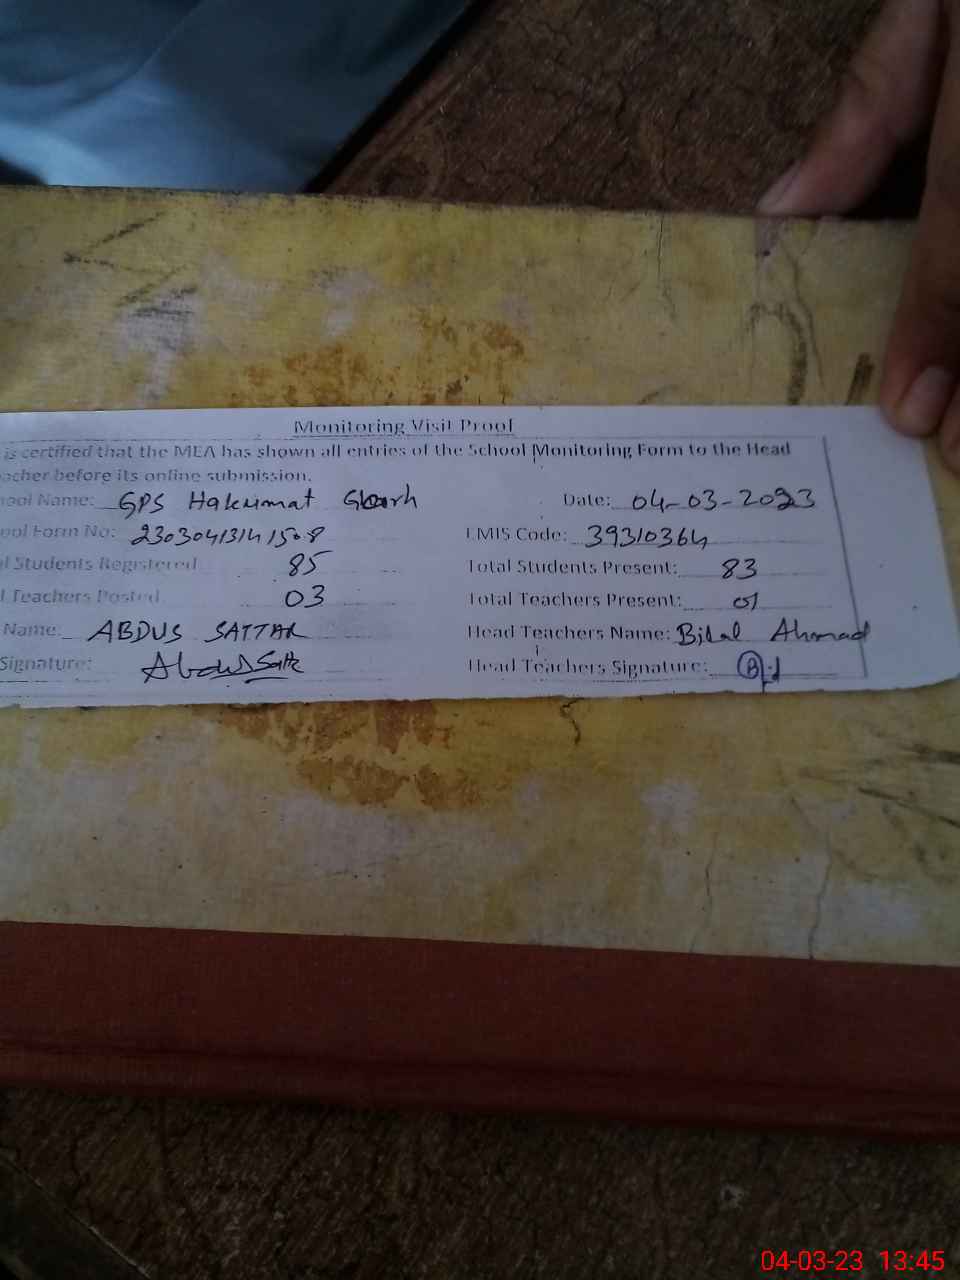 Monitoring Visit Proof
is certified that the MEA has shown all entries of the School Monitoring Form to the Head
acher before its online submission.
ool Name: GPS Hakummat Date: 04-03-2023
ool Form No: EMIS Code: 39310364
l Students Registered 85 Total Students Present: 83
l Teachers Posted 03 Total Teachers Present: 01
Name: ABDUS SATTAR Head Teachers Name: Bilal Ahmad
Signature: Abdus Satta Head Teachers Signature:
04-03-23 13:45